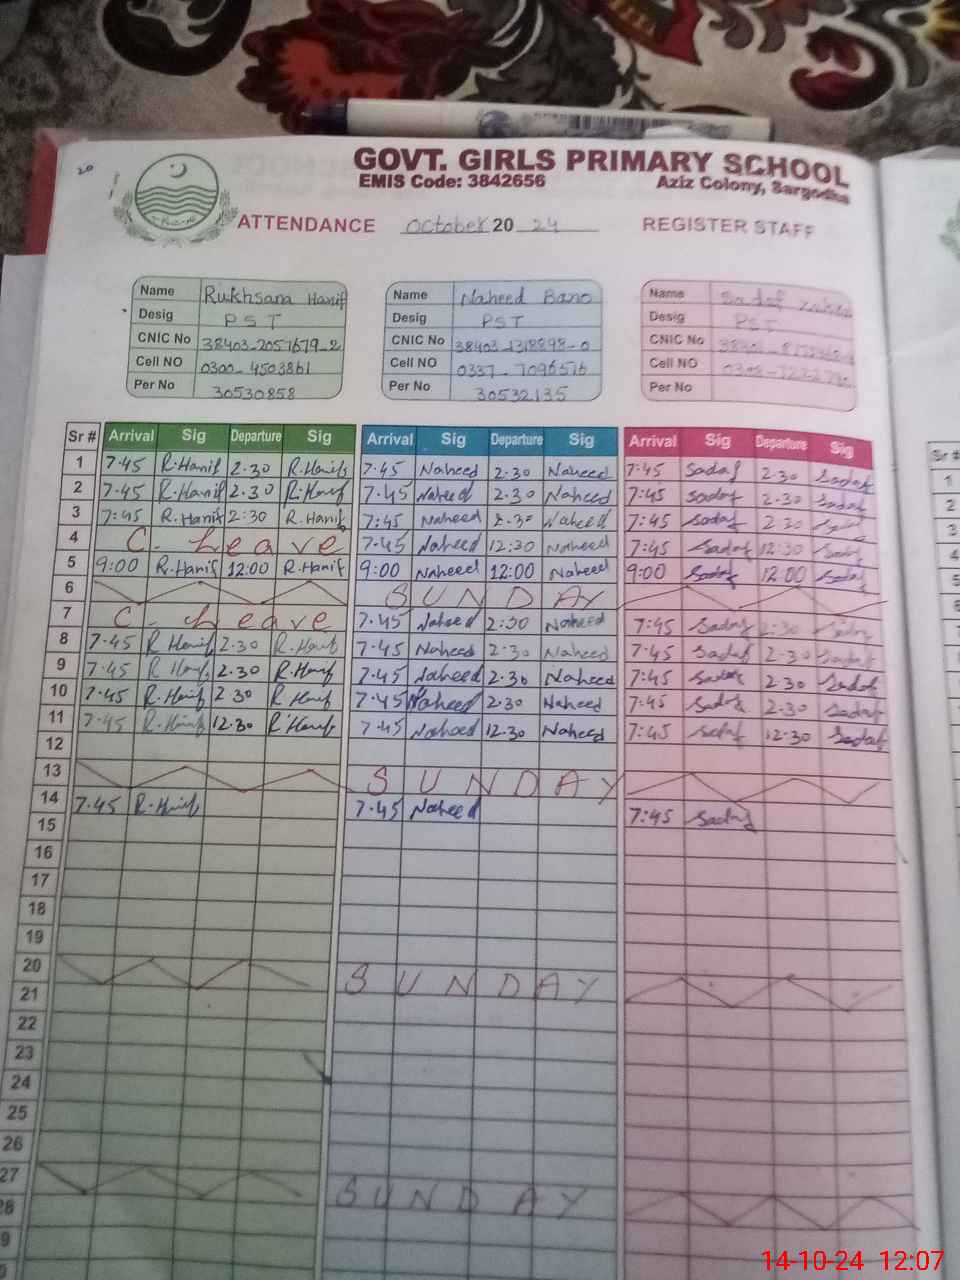 20
GOVT. GIRLS PRIMARY SCHOOL
EMIS Code: 3842656 Aziz Colony, Sargodha
ATTENDANCE October 20 24 REGISTER STAFF
Name Rukhsana Hanif Name Naheed Bano Name Sadaf
Desig PST Desig PST Desig PST
CNIC No 38403-2057679-2 CNIC No 38403-1318898-0 CNIC No
Cell NO 0300-4503861 Cell NO 0337-7096516 Cell NO
Per No 30530858 Per No 30532135 Per No
Sr # Arrival Sig Departure Sig Arrival Sig Departure Sig Arrival Sig Departure Sig Sr #
1 7.45 R.Hanif 2.30 R.Hanif 7.45 Naheed 2.30 Naheed 7:45 Sadaf 2.30 Sadaf 1
2 7.45 R.Hanif 2.30 R.Hanif 7.45 Naheed 2.30 Naheed 7:45 Sadaf 2.30 Sadaf 2
3 7:45 R.Hanif 2:30 R.Hanif 7:45 Naheed 2.30 Naheed 7:45 Sadaf 2:30 Sadaf 3
4 C. Leave 7.45 Naheed 12:30 Naheed 7:45 Sadaf 12:30 Sadaf 4
5 9:00 R.Hanif 12:00 R.Hanif 9:00 Naheed 12:00 Naheed 9:00 Sadaf 12:00 Sadaf 5
6 SUNDAY 6
7 C. Leave 7.45 Naheed 2:30 Naheed 7:45 Sadaf 2:30 Sadaf 7
8 7.45 R Hanif 2.30 R.Hanif 7.45 Naheed 2.30 Naheed 7.45 Sadaf 2.30 Sadaf
9 7.45 R Hanif 2.30 R.Hanif 7.45 Naheed 2.30 Naheed 7:45 Sadaf 2.30 Sadaf
10 7.45 R.Hanif 2 30 R Hanif 7.45 Naheed 2.30 Naheed 7:45 Sadaf 2.30 Sadaf
11 7.45 R.Hanif 12.30 R Hanif 7.45 Naheed 12.30 Naheed 7:45 Sadaf 12.30 Sadaf
12
13 SUNDAY
14 7.45 R.Hanif 7.45 Naheed 7:45 Sadaf
15
16
17
18
19
20 SUNDAY
21
22
23
24
25
26
27 SUNDAY
28
9
14-10-24 12:07